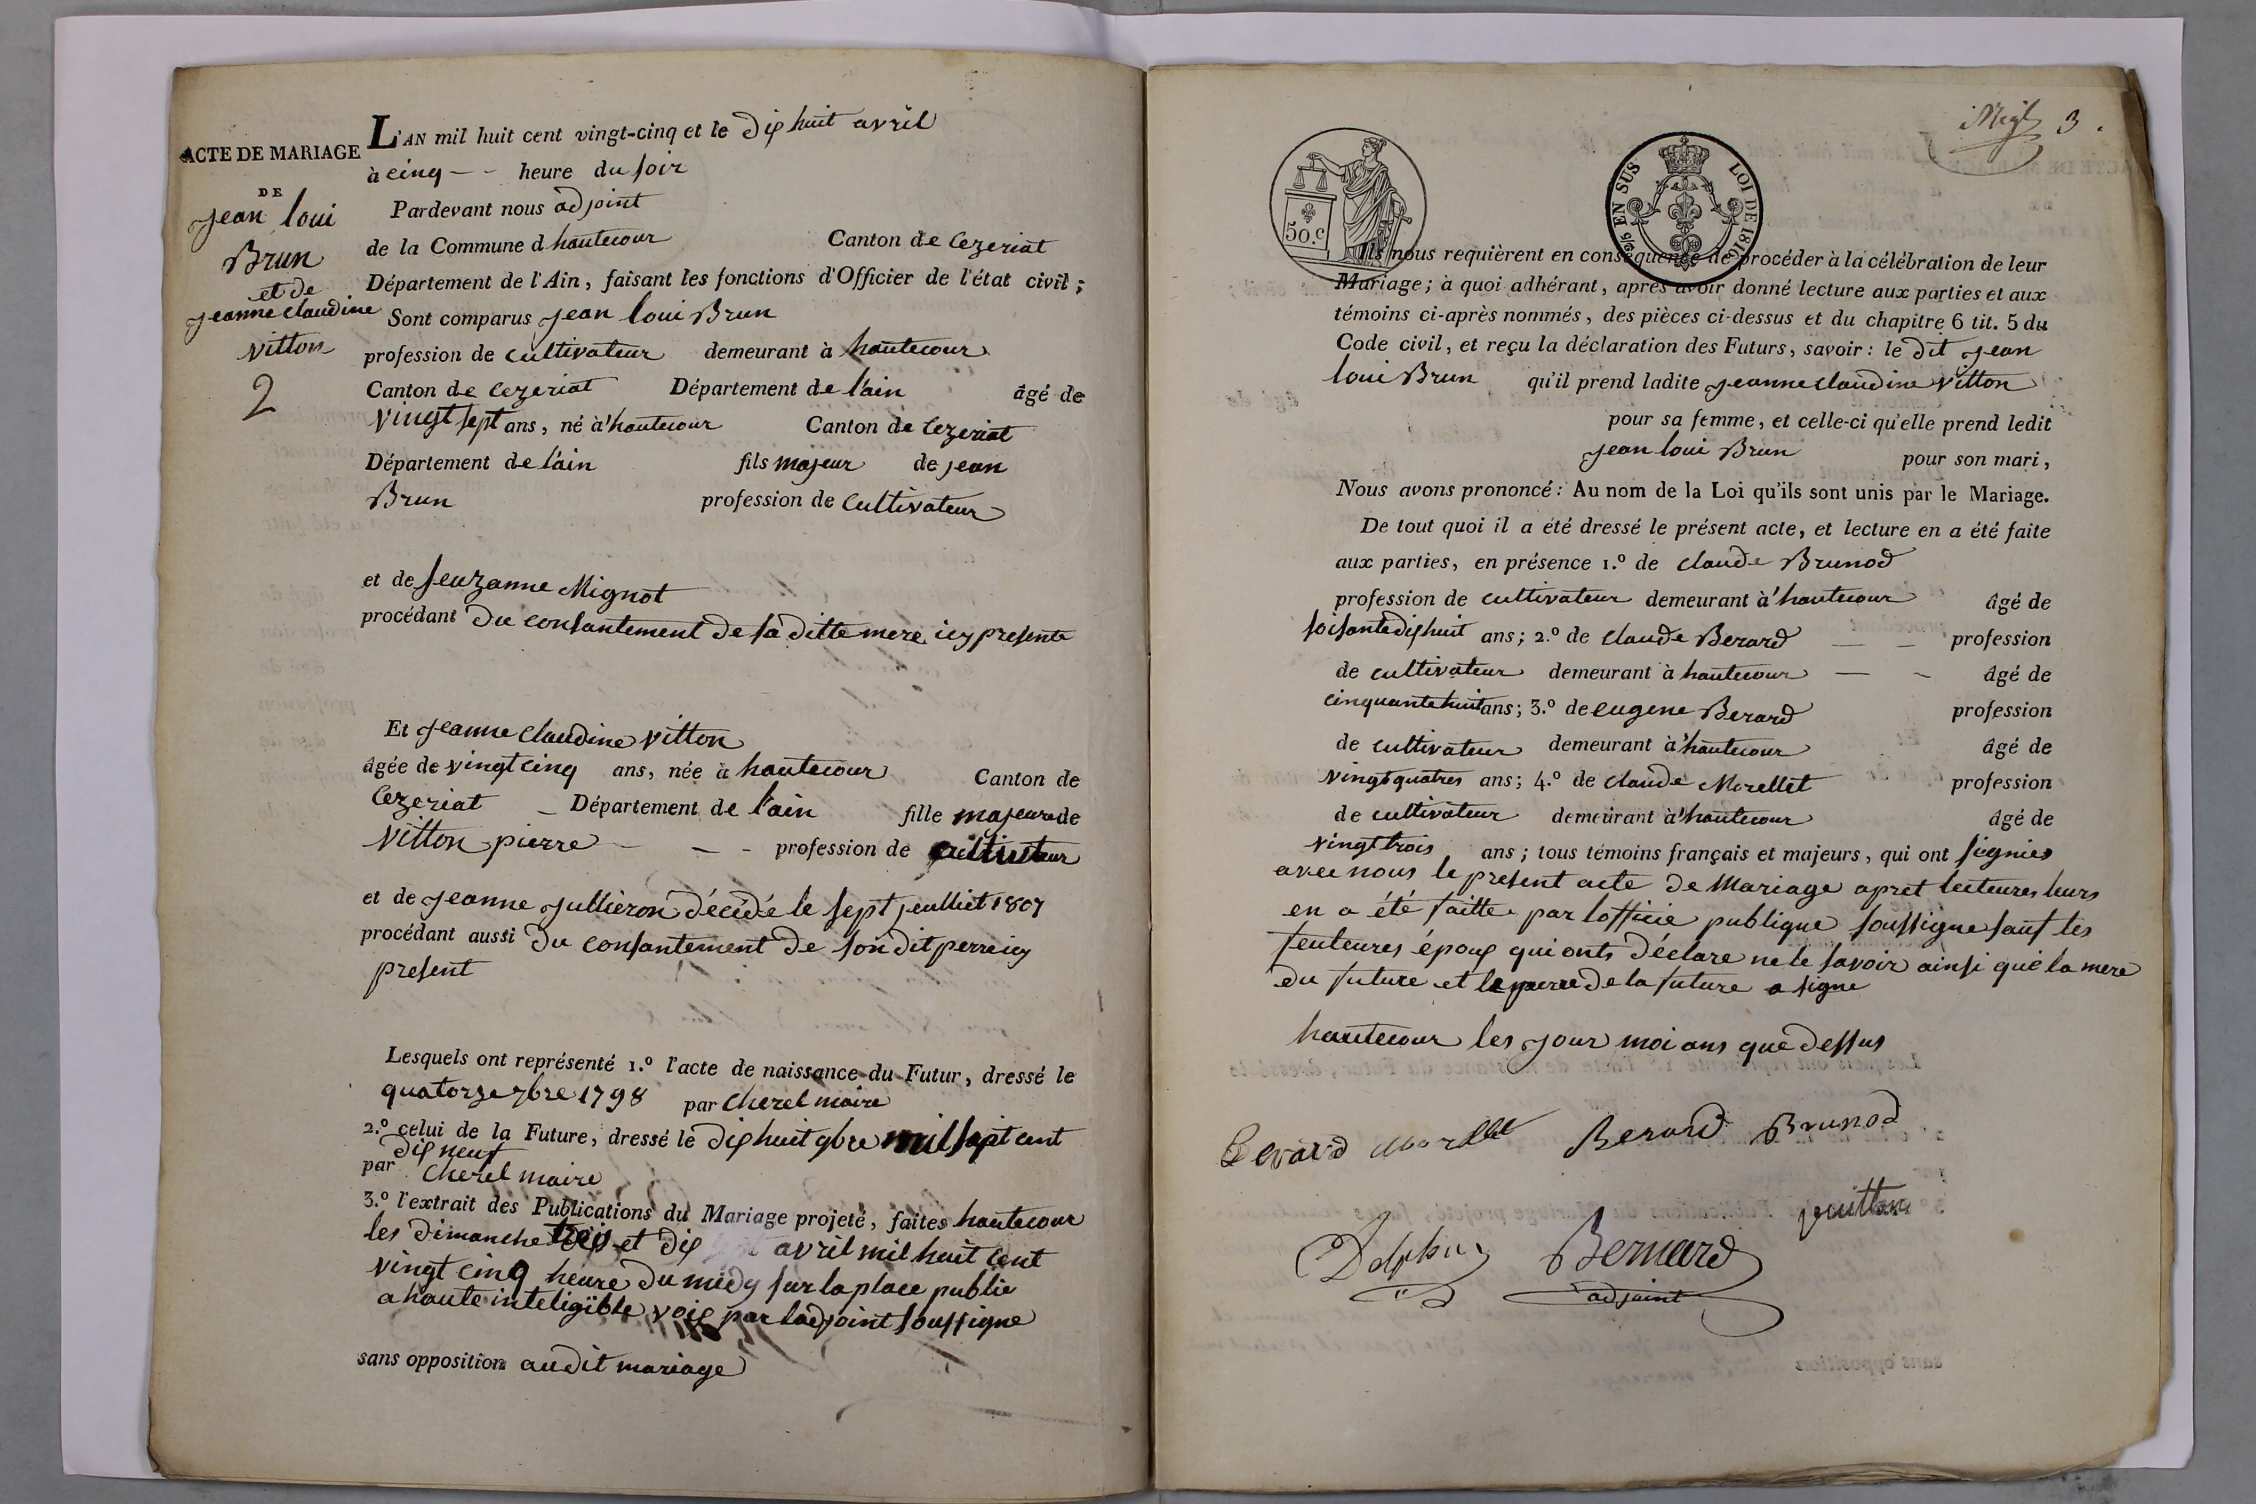 ACTE DE MARIAGE
DE
Jean loui
Brun
et de
jeanne claudine
vitton
2
L'AN mil huit cent vingt-cinq et le dix huit avril
à cinq - - heure du soir
Pardevant nous adjoint
de la Commune d hautecour Canton de Cezeriat
Département de l'Ain, faisant les fonctions d'Officier de l'état civil;
Sont comparus Jean loui Brun
profession de cultivateur demeurant à hautecour
Canton de cezeriat Département de l'ain âgé de
vingt sept ans, né à hautecour Canton de Cezeriat
Département de l'ain fils majeur de jean
Brun profession de cultivateur
et de seuzanne Mignot
procédant du consantement de sa ditte mere icy presente
Et jeanne claudine vitton
âgée de vingt cinq ans, née à hautecour Canton de
Cezeriat - Département de l'ain fille majeure de
vitton pierre - - - profession de cultivateur
et de jeanne jullieron décédé le sept jeulliet 1807
procédant aussi du consantement de son dit perre icy
present
Lesquels ont représenté 1.º l'acte de naissance du Futur, dressé le
quatorze 7bre 1798 par cherel maire
2.º celui de la Future, dressé le dix huit 9bre mil sept cent
dix neuf
par Cherel maire
3.º l'extrait des Publications du Mariage projeté, faites hautecour
les dimanche trois et dix avril mil huit cent
vingt cinq heure du midy sur la place public
a haute inteligible voix par ladjoint soussigne
sans opposition audit mariage
3.
50.c
EN SUS LOI DE 1816
Ils nous requièrent en conséquence de procéder à la célébration de leur
Mariage; à quoi adhérant, après avoir donné lecture aux parties et aux
témoins ci-après nommés, des pièces ci-dessus et du chapitre 6 tit. 5 du
Code civil, et reçu la déclaration des Futurs, savoir: le dit jean
loui Brun qu'il prend ladite jeanne claudine vitton
pour sa femme, et celle-ci qu'elle prend ledit
jean loui Brun pour son mari,
Nous avons prononcé: Au nom de la Loi qu'ils sont unis par le Mariage.
De tout quoi il a été dressé le présent acte, et lecture en a été faite
aux parties, en présence 1.º de claude Brunod
profession de cultivateur demeurant à hautecour âgé de
soisante dix huit ans; 2.º de claude Berard - - profession
de cultivateur demeurant à hautecour - - âgé de
cinquante huit ans; 3.º de eugene Berard profession
de cultivateur demeurant à hautecour âgé de
vingt quatres ans; 4.º de claude Morellet profession
de cultivateur demeurant à hautecour âgé de
vingt trois ans; tous témoins français et majeurs, qui ont signies
avec nous le present acte de Mariage apret lecteures leurs
en a été faitte par lofficie publique soussigne sauf les
feuteures époux qui onts déclare ne le savoir ainsi que la mere
du future et le perre de la future a signe
hautecour les jour moi ans que dessus
Berard Morellet Berard Brunod
pvitton
Delphin Bernard
adjoint